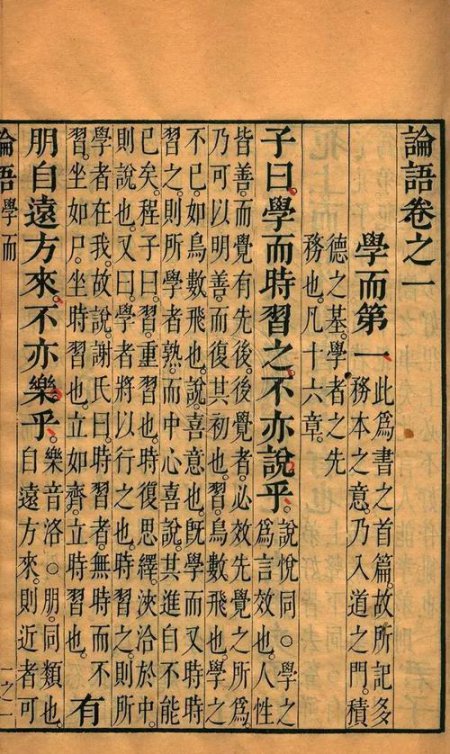 論語卷之一
學而第一
此爲書之首篇。故所記多
務本之意。乃入道之門。積
德之基。學者之先
務也。凡十六章。
子曰。學而時習之。不亦說乎。
說悅同○學之
爲言效也。人性
皆善。而覺有先後。後覺者。必效先覺之所爲。
乃可以明善。而復其初也。習。鳥數飛也。學之
不已。如鳥數飛也。說。喜意也。旣學而又時時
習之。則所學者熟。而中心喜說。其進自不能
已矣。程子曰。習。重習也。時復思繹。浹洽於中。
則說也。又曰。學者將以行之也。時習之。則所
學者在我。故說。謝氏曰。時習者。無時而不
習。坐如尸。坐時習也。立如齊。立時習也。
有
朋自遠方來。不亦樂乎。
樂音洛。○朋。同類也。
自遠方來。則近者可
論語
學而
一之一